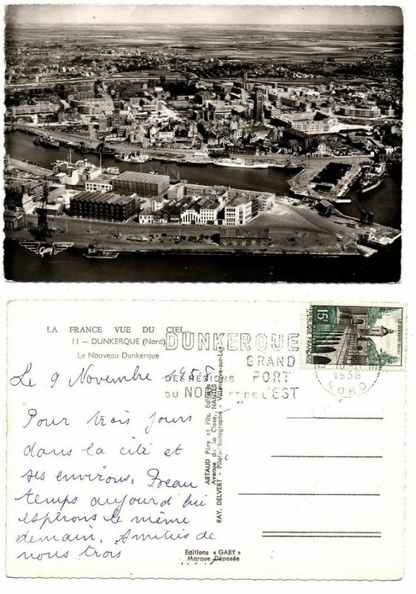 Gaby
LA FRANCE VUE DU CIEL
11 — DUNKERQUE (Nord)
Le Nouveau Dunkerque
DUNKERQUE
GRAND
PORT
DES RÉGIONS
DU NORD ET DE L'EST
15F
1958
NORD
Le 9 Novembre 1958
Pour trois jours
dans la cité et
ses environs. Beau
temps aujourd'hui
espérons le même
demain. Amitiés de
nous trois
ARTAUD Père et Fils, Editeurs
Avenue de la Close, NANTES
RAY. DELVERT - Pilote-Photographe - Villeneuve-sur-Lot
Editions « GABY »
Marque Déposée